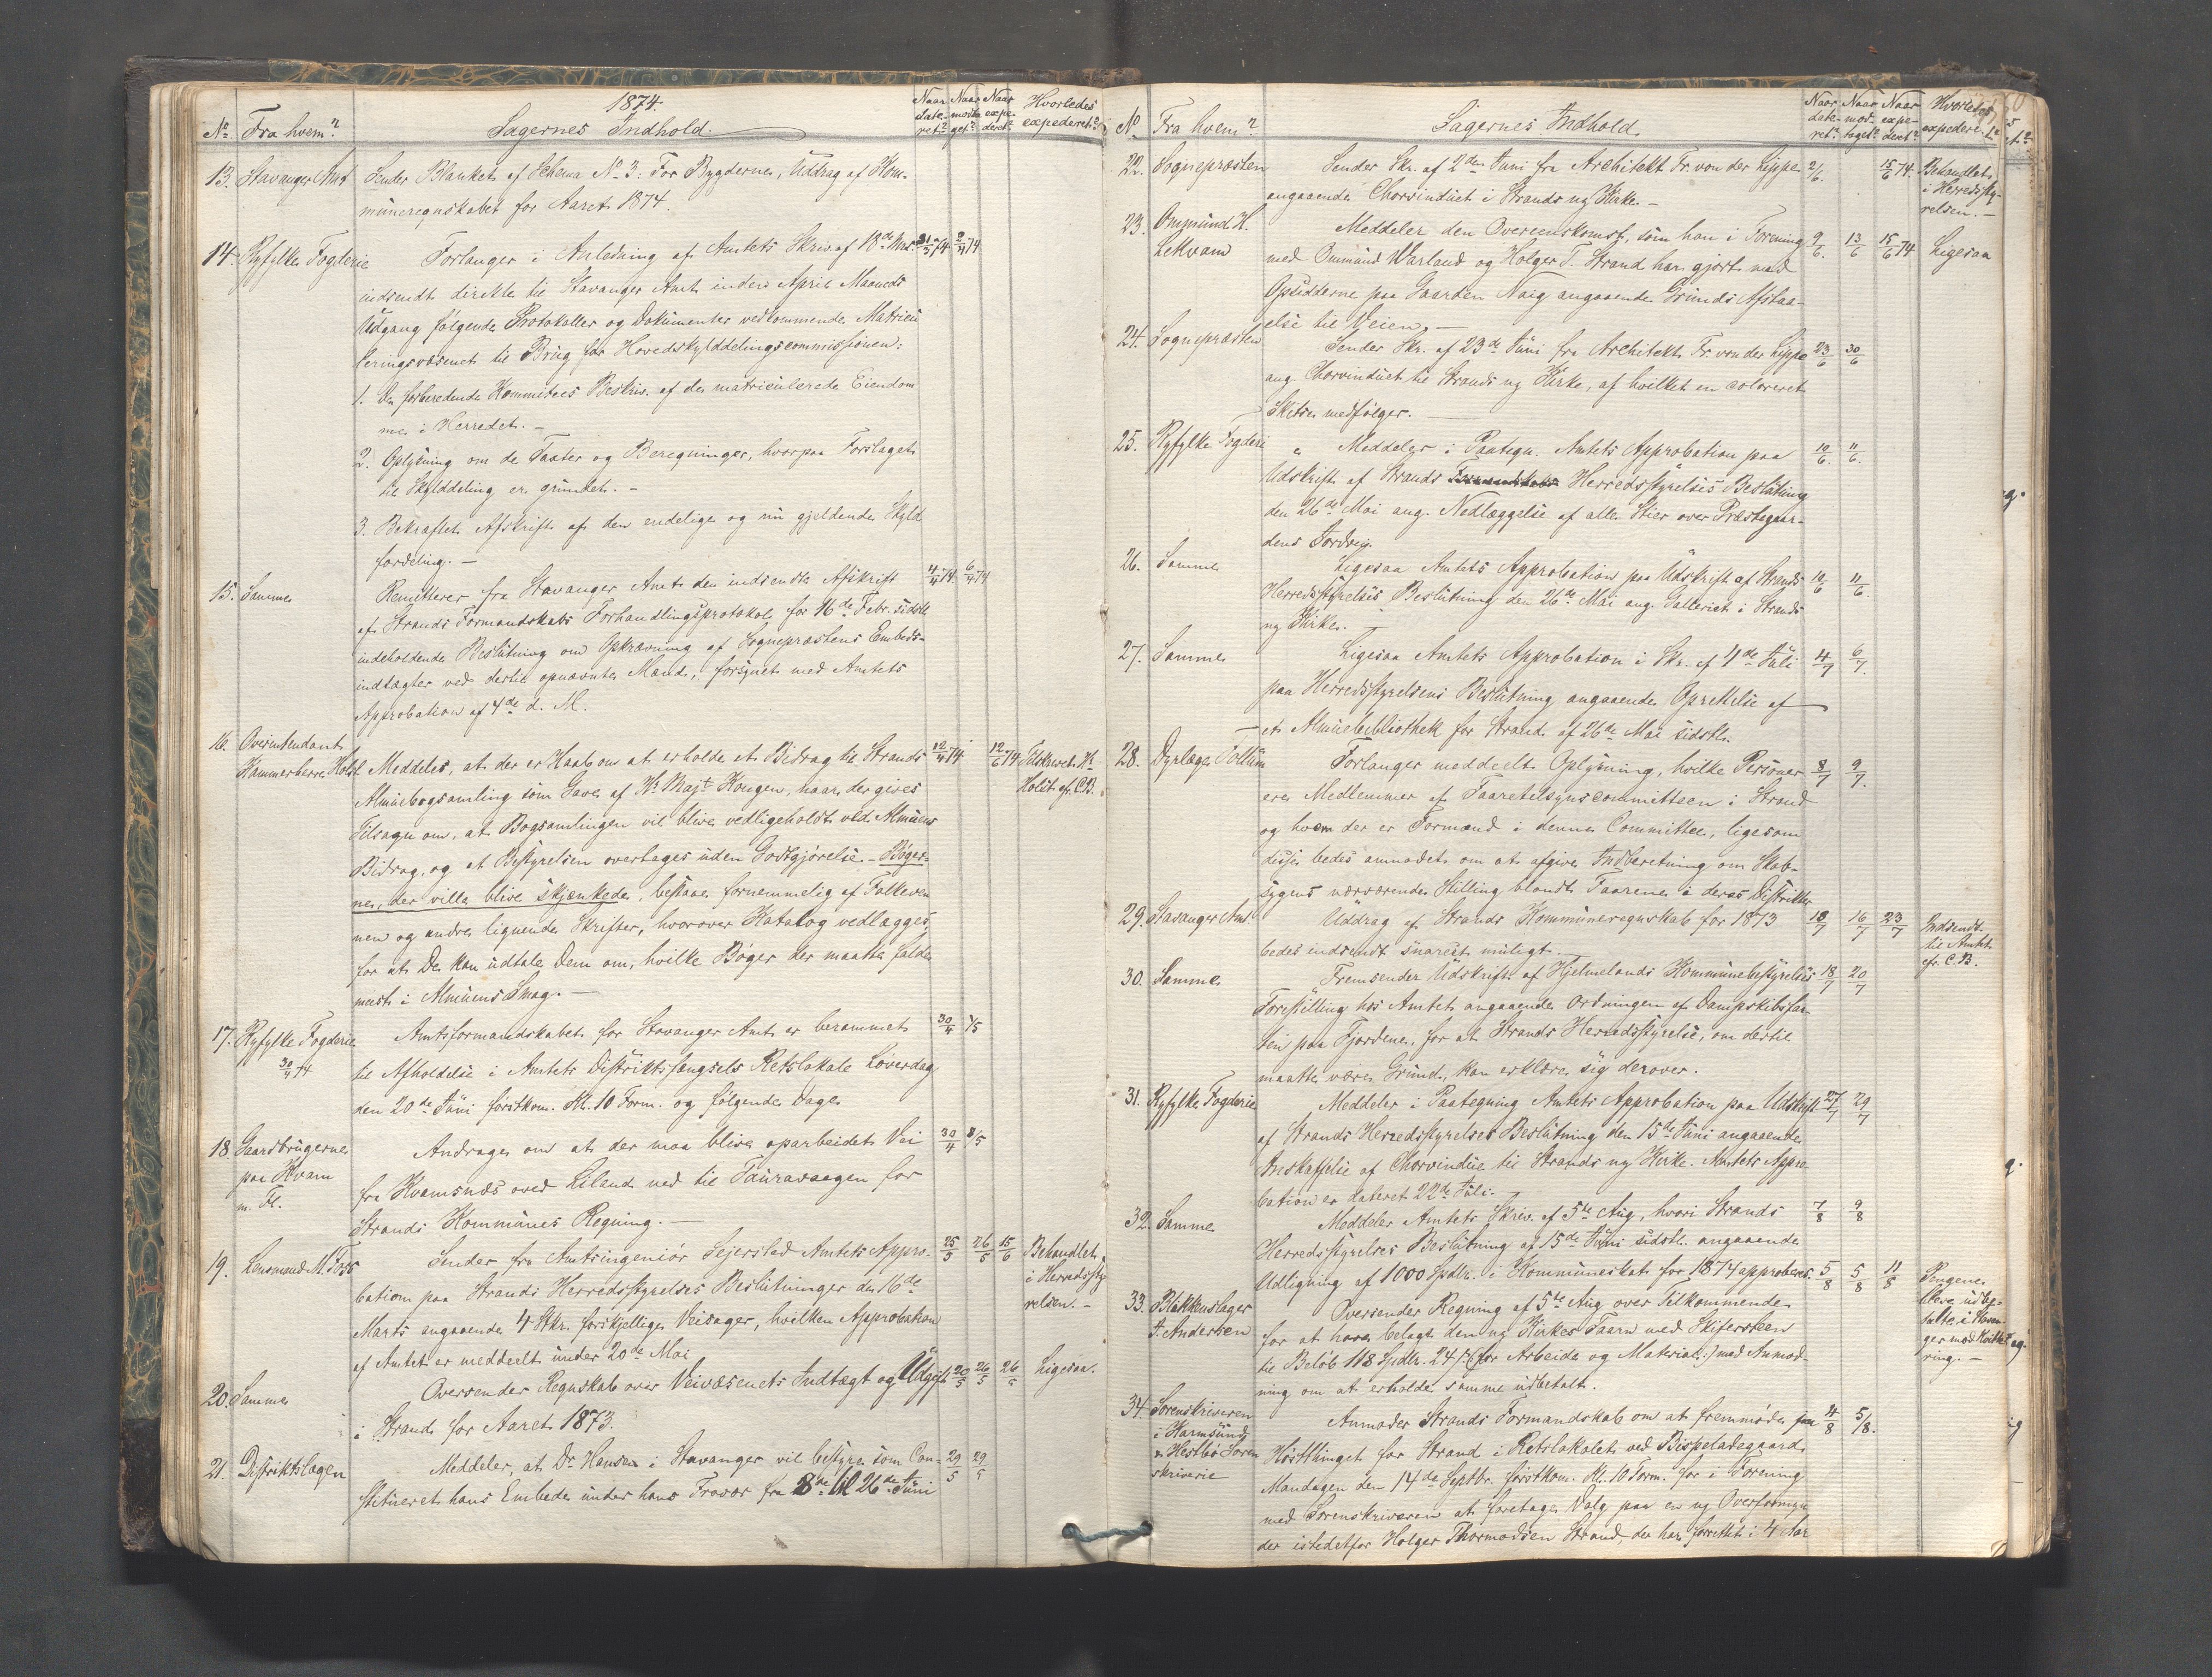 1874.
No. Fra hvem? Sagernes Indhold. Naar dateret? Naar modtaget? Naar expederet? Hvorledes expederet?
13. Stavanger Amt Sender Blanket af Schema No 3: For Bygderne, Uddrag af Kom-
muneregnskabet for Aaret 1874.
14. Ryfylke Fogderie Forlanger i Anledning af Amtets Skriv. af 18de Mrs. 31/3 74 2/4 74
indsendt direkte til Stavanger Amt inden April Maaneds
Udgang følgende Protokoller og Dokumenter vedkommende Matricu
leringsvæsenet til Brug for Hovedskylddelingscommissionen:
1. Den forberedende Kommitees Beskriv. af de matriculerede Eiendom
me i Herredet. –
2. Oplysning om de Taxter og Beregninger, hvorpaa Forslaget
til Skylddeling er grundet. –
3. Bekræftet Afskrift af den endelige og nu gjeldende Skyld
fordeling. –
15. Samme Remitterer fra Stavanger Amt den indsendte Afskrift 4/4 74. 6/4 74
af Strands Formandskabs Forhandlingsprotokol for 16de Febr. sidstl.
indeholdende Beslutning om Opkrævning af Sognepræstens Embeds-
indtægter ved dertil opnævnte Mænd, forsynet med Amtets
Approbation af 4de d. M.
16. Overintendant
Kammerherre Holst Meddeles, at der er Haab om at erholde et Bidrag til Strands 12/4 74 12/6 74 Tilskrevet Hr.
Almuebogsamling som Gave af Hs Majt Kongen, naar der gives Holst cfr. C.B.
Tilsagn om, at Bogsamlingen vil blive vedligeholdt ved Almuens
Bidrag, og at Bestyrelsen overtages uden Godtgjørelse. – Bøger-
ne, der ville blive skjenkede, bestaae fornemmelig af Folkeven
nen og andre lignende Skrifter, hvorover Katalog vedlægges,
for at De kan udtale Dem om, hvilke Bøger der maatte falde
mest i Almuens Smag. –
17. Ryfylke Fogderie Amtsformandskabet for Stavanger Amt er berammet 30/4 1/5
30/4 74 til Afholdelse i Amtets Distriktsfængsels Retslokale Løverdag
den 20de Juni førstkom. Kl. 10 Form. og følgende Dage
18. Gaardbrugerne Andrage om at der maa blive oparbeidet Vei 30/4 8/5
paa Kvam fra Kvamsnæs over Liland ned til Tauravaagen for
m. Fl. Strands Kommunes Regning. –
19. Lensmand M. Foss Sender fra Amtsingeniør Sejersted Amtets Appro- 25/5 26/5 15/6 Behandlet
bation paa Strands Herredsstyrelses Beslutninger den 16de i Herredssty
Marts angaaende 4 Stkr. forskjellige Veisager, hvilken Approbation relsen. –
af Amtet er meddeelt under 20de Mai
20. Samme Oversender Regnskab over Veivæsenets Indtægt og Udgift 20/5 26/5 26/5 Ligesaa.
i Strand for Aaret 1873.
21. Distriktslægen Meddeler, at Dr Hansen i Stavanger vil bestyre som Con- 29/5 29/5
stitueret hans Embede under hans Fravær fra 8de til 26de Juni
No Fra hvem? Sagernes Indhold. Naar dateret? Naar modtaget? Naar expederet? Hvorledes expedere
22. Sognepræsten Sender Skr. af 2den Juni fra Architekt Fr. von der Lippe 2/6. 15/6 74. Behandlet
angaaende Chorvinduet i Strands ny Kirke. – i Herredssty-
relsen. –
23. Ommund H. Meddeler den Overeenskomst, som han i Forening 9/6. 13/6 15/6 74 Ligesaa
Lekvam med Ommund Warland og Holger T. Strand har gjort med
Opsidderne paa Gaarden Naig angaaende Grunds Afstaa-
else til Veien. –
24. Sognepræsten Sender Skr. af 23de Juni fra Architekt Fr. von der Lippe 23/6 30/6
ang. Chorvinduet til Strands ny Kirke, af hvilket en coloreret
Skitse medfølger. –
25. Ryfylke Fogderi Meddeler i Paategn. Amtets Approbation paa 10/6. 11/6.
Udskrift af Strands Herredsstyrelses Beslutning
den 26de Mai ang. Nedlæggelse af alle Stier over Præstegaar-
dens Jordvei.
26. Samme Ligesaa Amtets Approbation paa Udskrift af Strands 10/6 11/6.
Herredsstyrelses Beslutning den 26de Mai ang. Galleriet i Strands
ny Kirke. –
27. Samme Ligesaa Amtets Approbation i Skr. af 4de Juli 4/7 6/7.
paa Herredsstyrelsens Beslutning angaaende Oprettelse af
et Almuebibliothek for Strand af 26de Mai sidstl.
28. Dyrlæge Tollum Forlanger meddeelt Oplysning, hvilke Personer 8/7 9/7.
ere Medlemmer af Faaretilsynscommitteen i Strand
og hvem der er Formand i denne Committee, ligesom
disse bedes anmodet om at afgive Indberetning om Skab-
sygens nærværende Stilling blandt Faarene i deres Distrikter
29. Stavanger Amt. Uddrag af Strands Kommuneregnskab for 1873 10/7 16/7 23/7 Indsendt
bedes indsendt snarest muligt. til Amtet
cfr. C.B.
30. Samme Fremsender Udskrift af Hjelmelands Kommunebestyrelses 18/7 20/7
Forestilling hos Amtet angaaende Ordningen af Dampskibsfar-
ten paa Fjordene, for at Strands Herredsstyrelse, om dertil
maatte være Grund, kan erklære sig derover.
31. Ryfylke Fogderie Meddeler i Paategning Amtets Approbation paa Udskrift 27/7 29/7
af Strands Herredsstyrelses Beslutning den 15de Juni angaaende
Anskaffelse af Chorvindue til Strands ny Kirke. Amtets Appro
bation er dateret 22de Juli.
32. Samme Meddeler Amtets Skriv. af 5te Aug, hvori Strands 7/8 9/8
Herredsstyrelses Beslutning af 15de Juni sidstl. angaaende
Udligning af 1000 Spdlr. i Kommuneskat for 1874 approberes.
33. Blikkenslager Oversender Regning af 5te Aug over Tilkommende 5/8 5/8 11/8 Pengene
T. Andersen for at have belagt den ny Kirkes Taarn med Skifersteen bleve udbe-
til Beløb 118 Spdlr. 24 s (for Arbeide og Material:) med Anmod- talte
ning om at erholde samme udbetalt. ring. –
34. Sorenskriveren Anmoder Strands Formandskab om at fremmøde paa 4/8 5/8.
i Karmsund Høstthinget for Strand i Retslokalet ved Bispeladegaard
Mandagen den 14de Septbr. førstkom. Kl. 10 Form. for i Forening
skriverie med Sorenskriveren at foretage Valg paa en ny Overformyn
der istedetfor Holger Thormodsen Strand, der har forrettet i 4 Aar